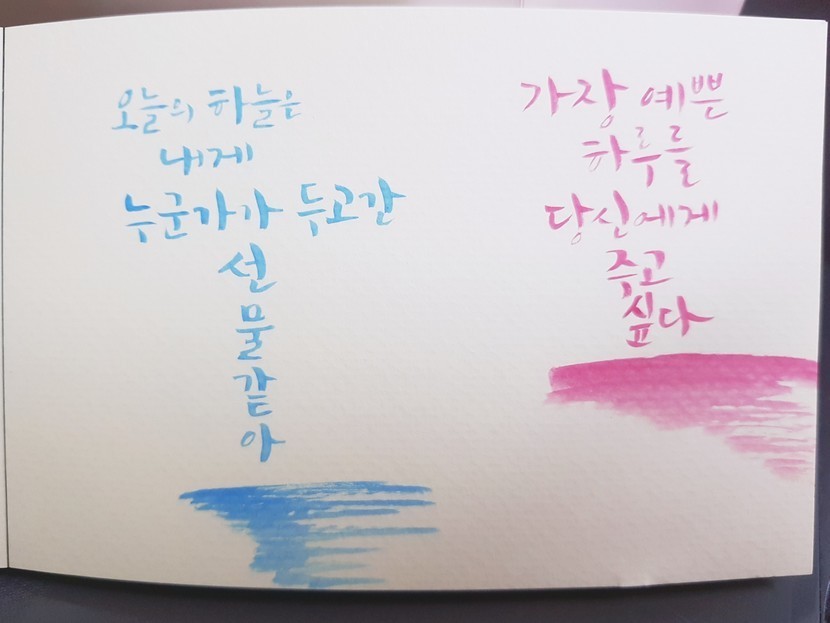 오늘의 하늘은
내게
누군가가 두고간
선
물
같
아
가장 예쁜
하루를
당신에게
주고
싶다